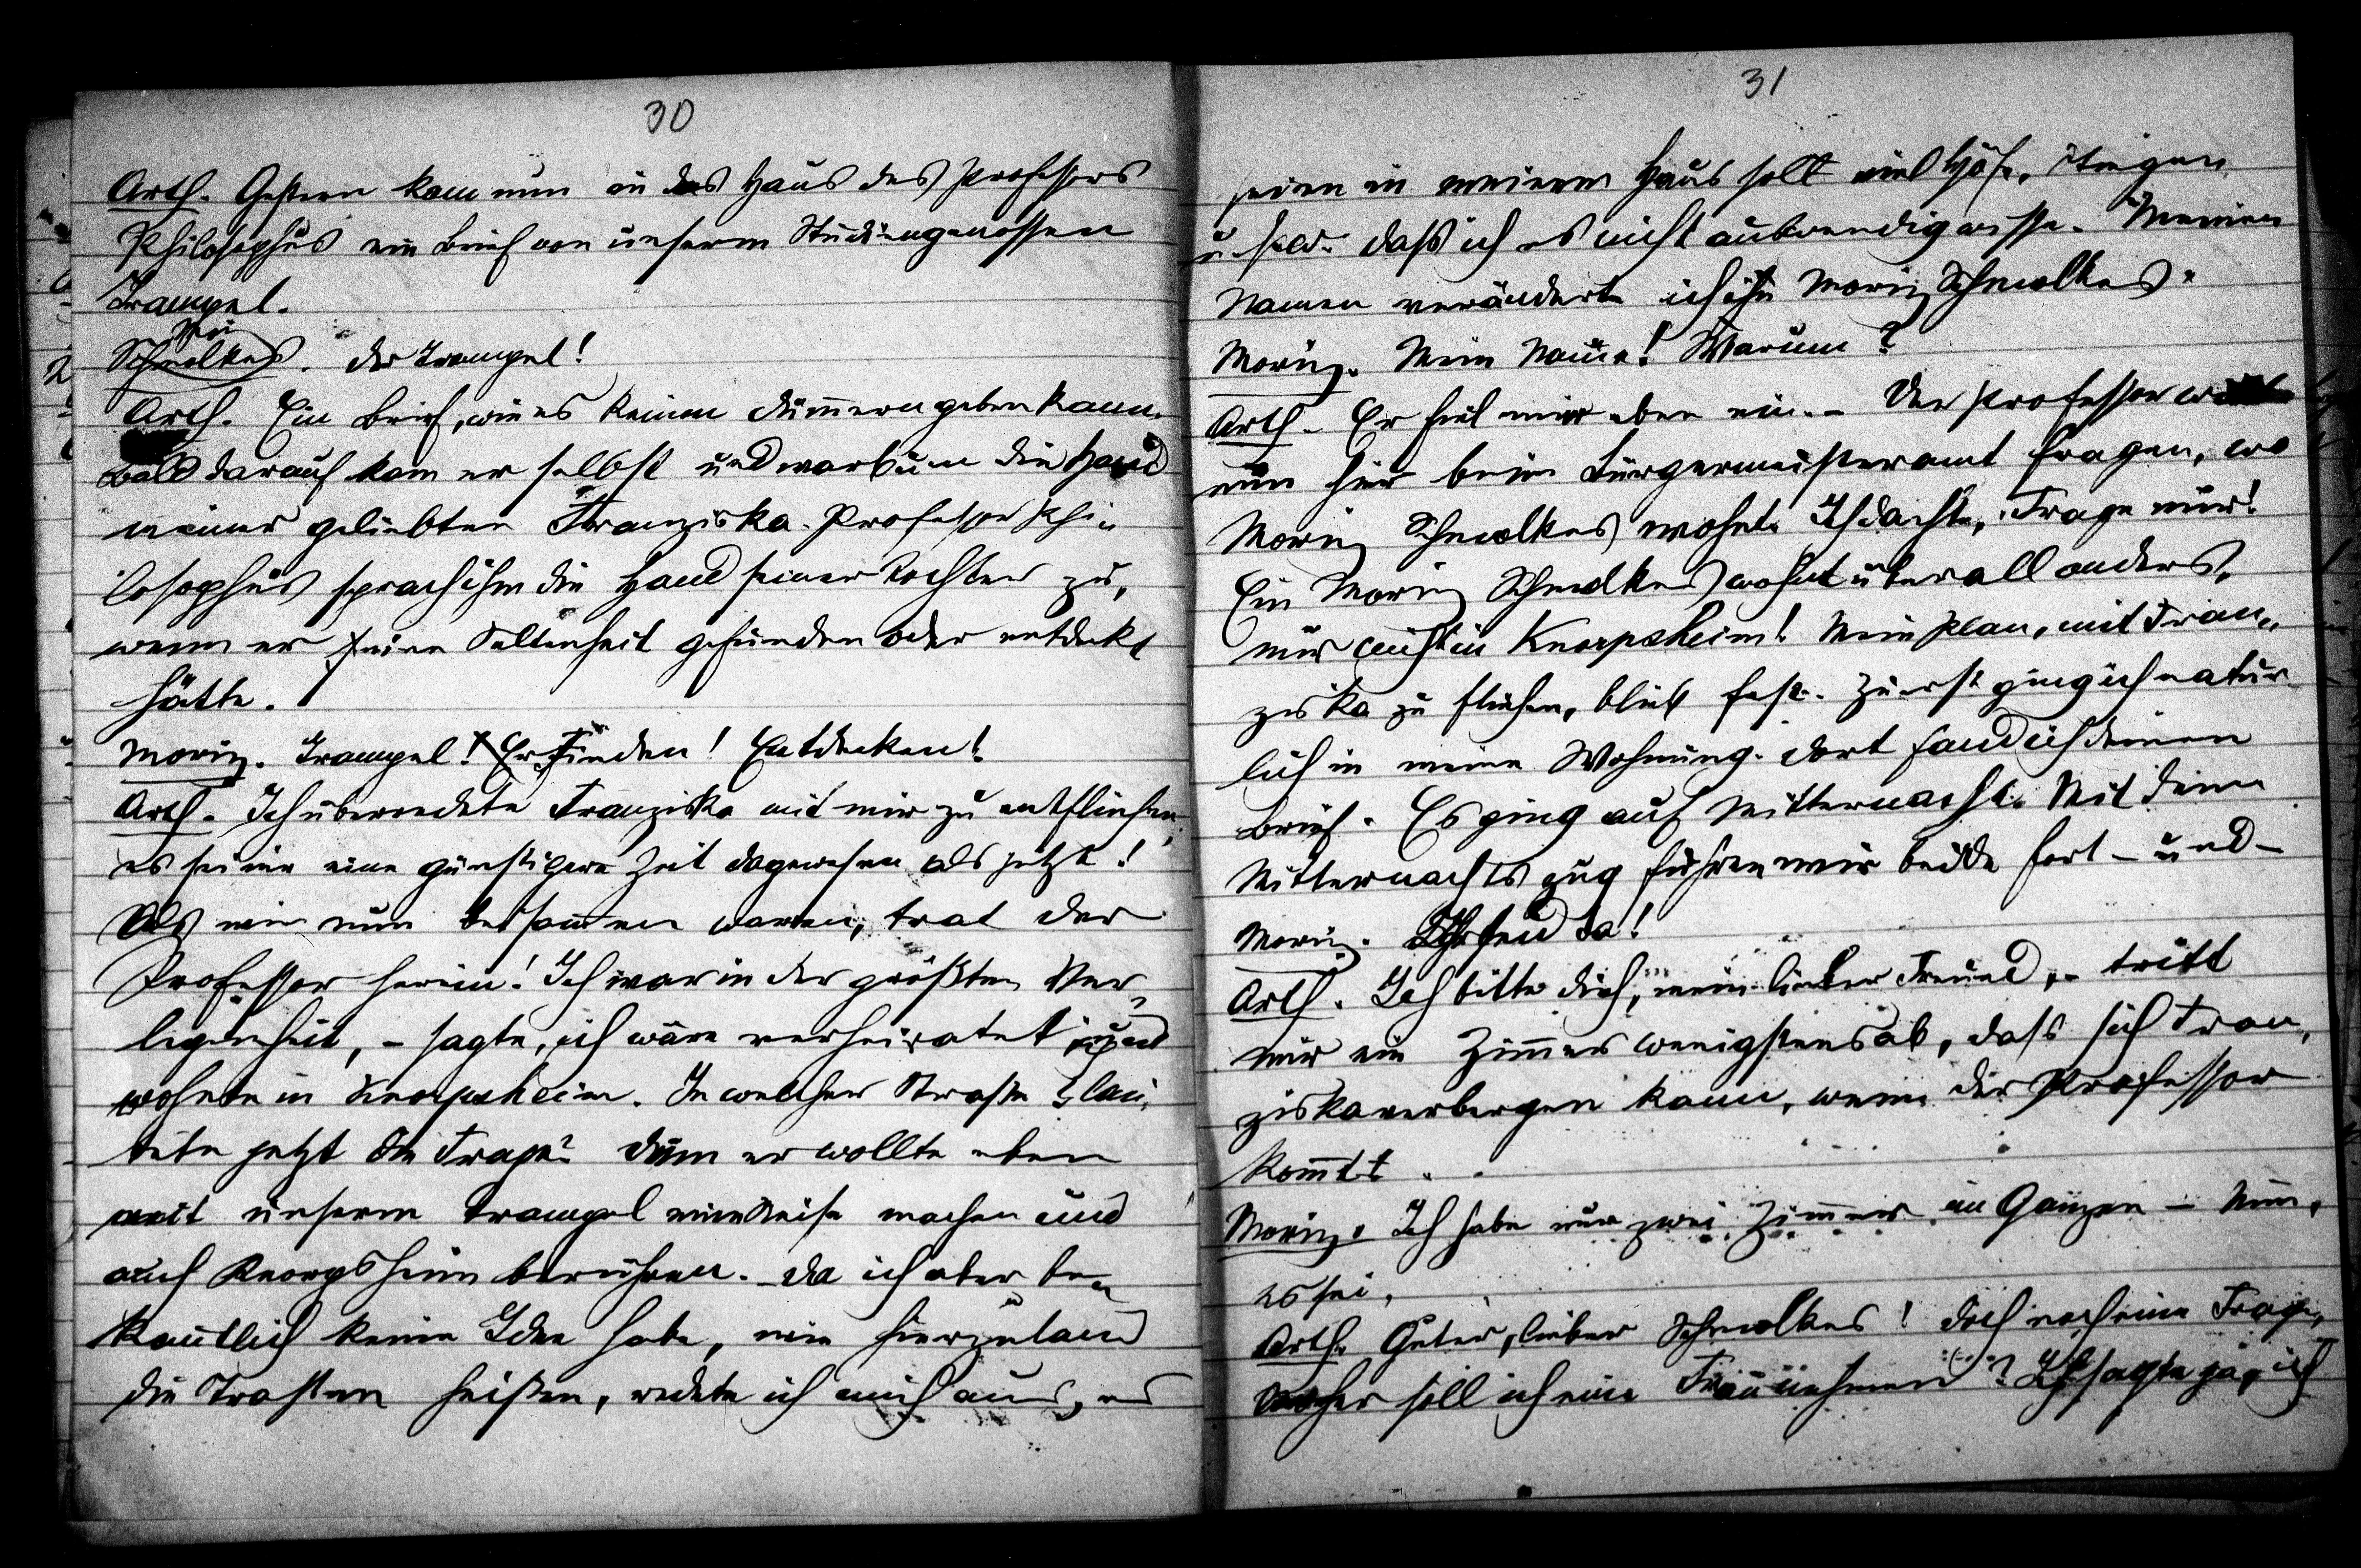 30
Arth. Gestern kam nun in das Haus des Professors
Philosophus ein Brief von unserm Studiengenossen
Trampel.
Schmolkes. Der Trampel!
Arth. Ein Brief, wie es keinen dümmern geben kann.
Bald darauf kam er selbst und warb um die Hand
meiner geliebten Franziska. Professor Phi-
losophus sprach ihm die Hand seiner Tochter zu,
wenn er eine Seltenheit gefunden oder entdekt
hätte.
Moriz. Trampel! Erfinden! Entdecken!
Arth. Ich überredete Franziska mit mir zu entfliehen,
es sei nie eine günstigere Zeit dagewesen als jetzt!
Als wir nun beisammen waren, trat der
Professor herein! Ich war in der größten Ver-
legenheit, - sagte, ich wäre verheiratet und
wohnte in Knorpsheim. In welcher Straße? lau-
tete jetzt die Frage? Denn er wollte eben
mit unserm Trampel eine Reise machen und
auch Knorpsheim berühren. Da ich aber be-
kanntlich keine Idee habe, wie hierzuland
die Straßen heißen, redete ich mich aus, es
31
seien in meinem Haus soll viel Höfe, Stiegen
u. s. w. daß ich es nicht auswendig wisse. Meinen
Namen veränderte ich in Moriz Schmolkes.
Moriz. Mein Name! Warum?
Arth. Er fiel mir eben ein. - Der Professor
nun hier beim Bürgermeisteramt fragen, wo
Moriz Schmolkes wohnt. Ich dachte, Frage nur!
Ein Moriz Schmolkes wohnt überall anders,
nur nicht in Knorpsheim! Mein Plan, mit Fran-
ziska zu fliehen, blieb fest. Zuerst ging ich natür-
lich in meine Wohnung. Dort fand ich deinen
Brief. Es ging auf Mitternacht. Mit dem
Mitternachtszug fuhren wir beide fort - und -
Moriz. Ihr seid da!
Arth. Ich bitte dich, mein lieber Freund, - tritt
mir ein Zimmer wenigstens ab, daß sich Fran-
ziska verbergen kann, wenn der Professor
kommt.
Moriz. Ich habe nur zwei Zimmer im Ganzen - Nun,
es sei.
Arth. Guter, lieber Schmolkes! Doch noch eine Frage,
Woher soll ich eine Frau nehmen? Ich sagte ja, ich